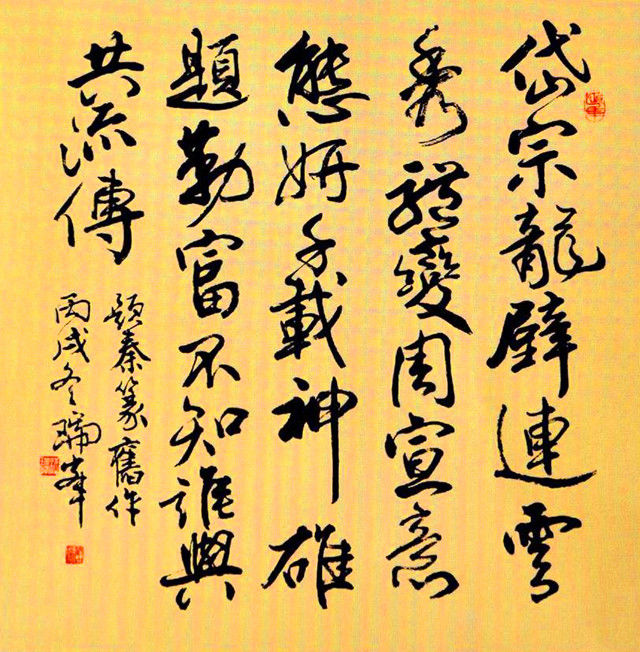 岱宗龍壁連雲
秀體變周宣意
態妍千載神雄
題勒富不知誰與
共流傳
題秦篆舊作
丙戌冬瑞峰